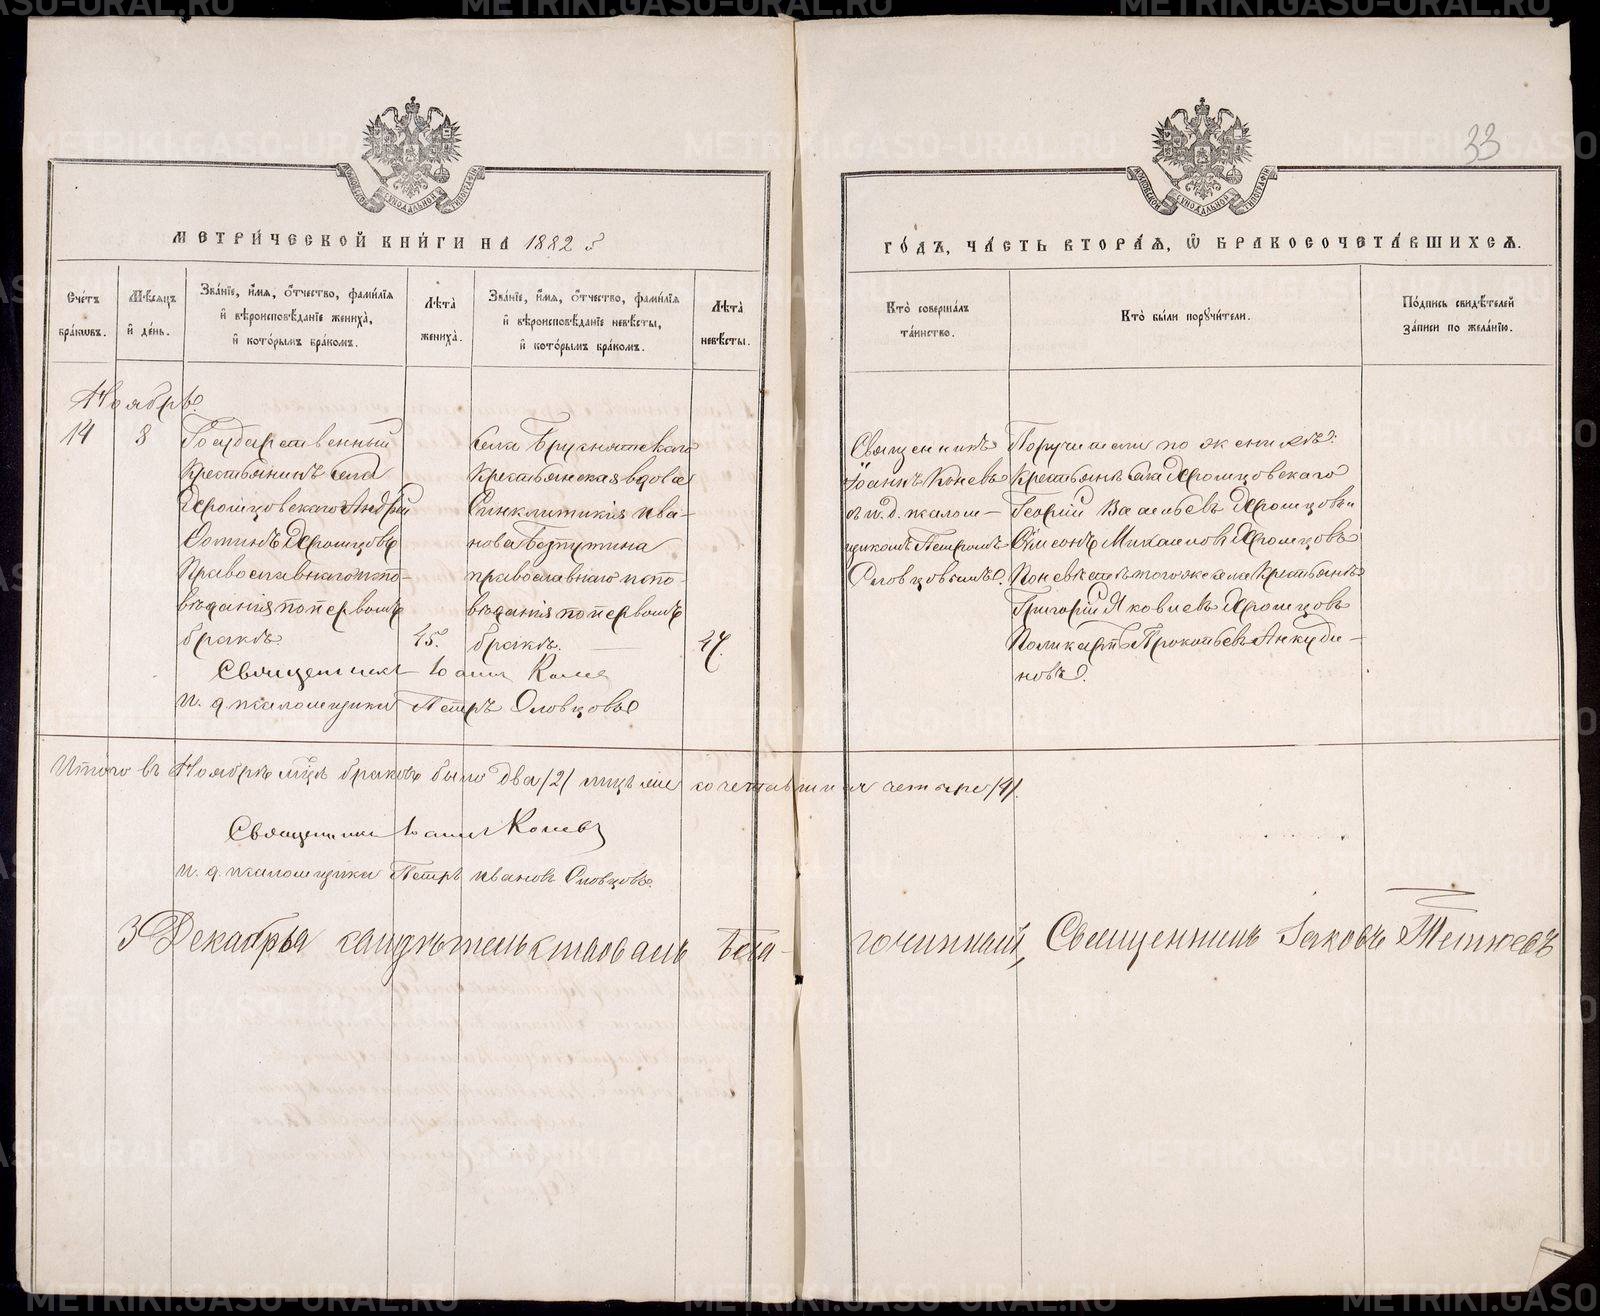 33
МЕТРИ́ЧЕСКОЙ КНИ́ГИ НА 1882 й
ГО́ДЪ, ЧА́СТЬ ВТОРА́Я, Ѿ БРАКОСОЧЕТА́ВШИХСЯ.
Сче́тъ бра́кѡвъ.
Мѣ́сяцъ и҆ де́нь.
Зва́нїе, и҆́мя, ѻ҆́тчество, фами́лїя и҆ вѣроисповѣ́данїе жениха̀, и҆ кото́рымъ бра́комъ.
Лѣ́та̀ жениха̀.
Зва́нїе, и҆́мя, ѻ҆́тчество, фами́лїя и҆ вѣроисповѣ́данїе невѣ́сты, и҆ кото́рымъ бра́комъ.
Лѣ́та̀ невѣ́сты.
Кто̀ соверша́лъ та́инство.
Кто̀ бы́ли порꙋчи́тели.
По́дпись свидѣ́телей за́писи по жела́нїю.
Ноябрь.
14
8
Государственный
Крестьянинъ села
Хромцовскаго Андрей
Фотинъ Хромцовъ
Православнаго испо-
вѣданія по первому
бракъ.
45.
села Бруснятскаго
Крестьянская вдова
Синклитикія Ива-
нова
православнаго испо-
вѣданія по первому
бракъ.
47.
Священникъ
Іоаннъ Коневъ
съ и. д. псалом-
щикомъ Петромъ
Словцовымъ.
Поручители по женихѣ:
Крестьяне села Хромцовскаго
Георгій Васильевъ Хромцовъ и
Симеонъ Михаиловъ Хромцовъ
По невѣстѣ того же села Крестьяне
Григорій Яковлевъ Хромцовъ
Поликарпъ Прокопьевъ Анкуди-
новъ.
Священникъ Іоаннъ Коневъ
и. д. псаломщика Петръ Словцовъ
Итого въ Ноябрѣ мцѣ браковъ было два /2/ лицъ же сочетавшихся четыре /4/.
Священникъ Іоаннъ Коневъ
и. д. псаломщика Петръ Ивановъ Словцовъ.
3 Декабря свидѣтельствовалъ Бла-
гочинный, Священникъ Іаковъ